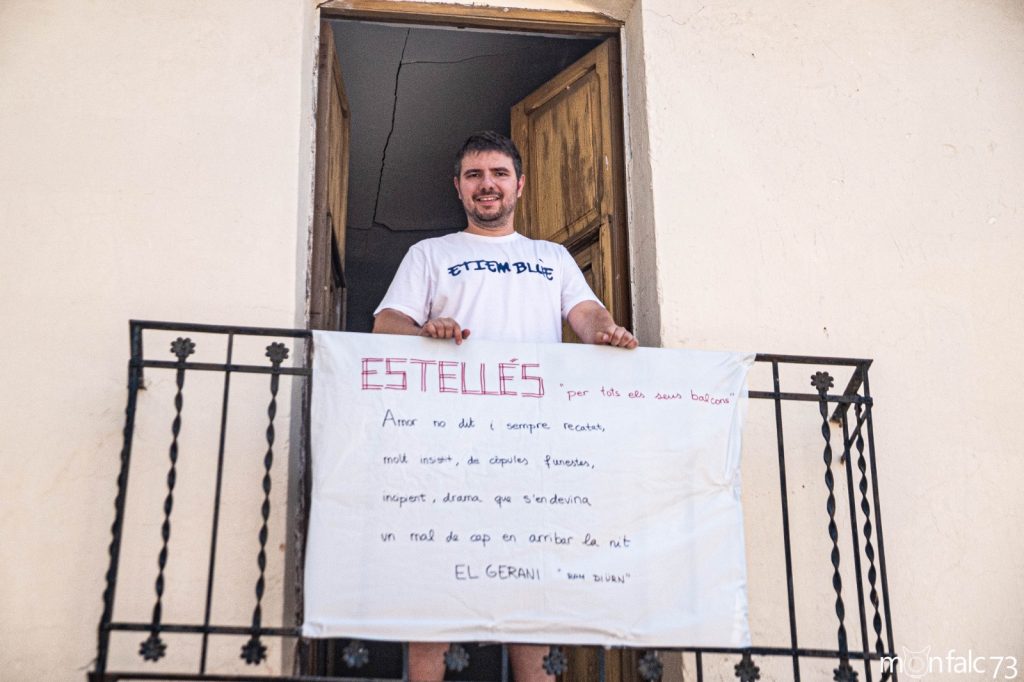 ETIEMBLUE
ESTELLÉS "per tots els seus balcons"
Amor no dit i sempre recatat,
molt insistit, de còpules funestes,
incipient, drama que s'endevina
un mal de cap en arribar la nit
EL GERANI "RAM DIÜRN"
monfalc 73